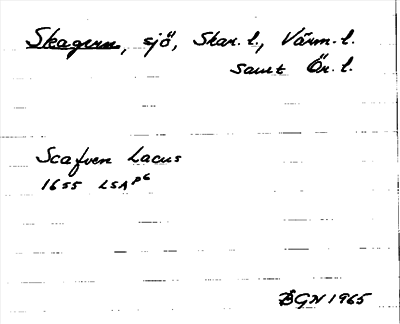 Skagern, sjö, Skar. l., Värm. l.
samt Ör. l.
Scafven Lacus
1655 LSA p6
BGN 1965